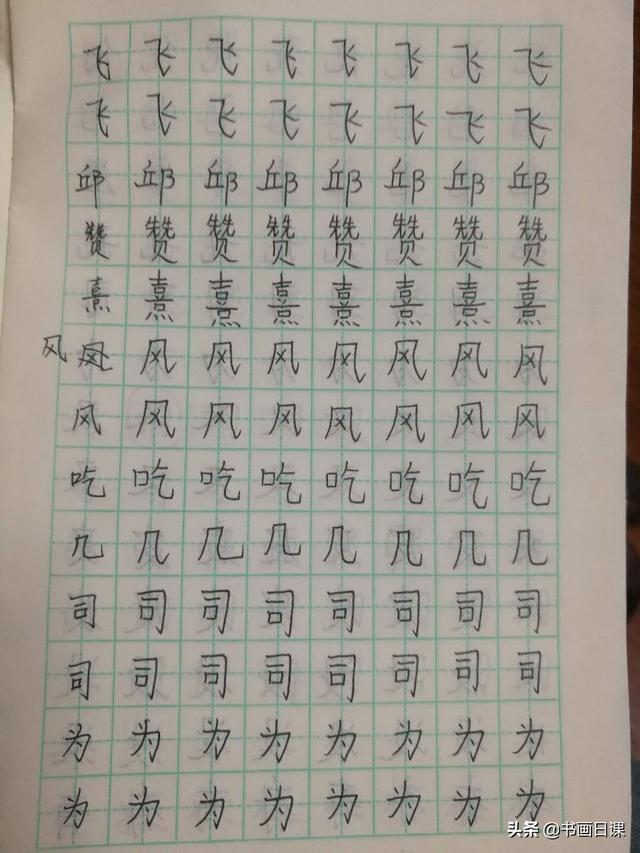 飞飞飞飞飞飞飞飞
飞飞飞飞飞飞飞飞
邱邱邱邱邱邱邱邱
赞赞赞赞赞赞赞赞
熹熹熹熹熹熹熹熹
风风风风风风风风
风风风风风风风风
吃吃吃吃吃吃吃吃
几几几几几几几几
司司司司司司司司
司司司司司司司司
为为为为为为为为
为为为为为为为为
头条 @书画日课